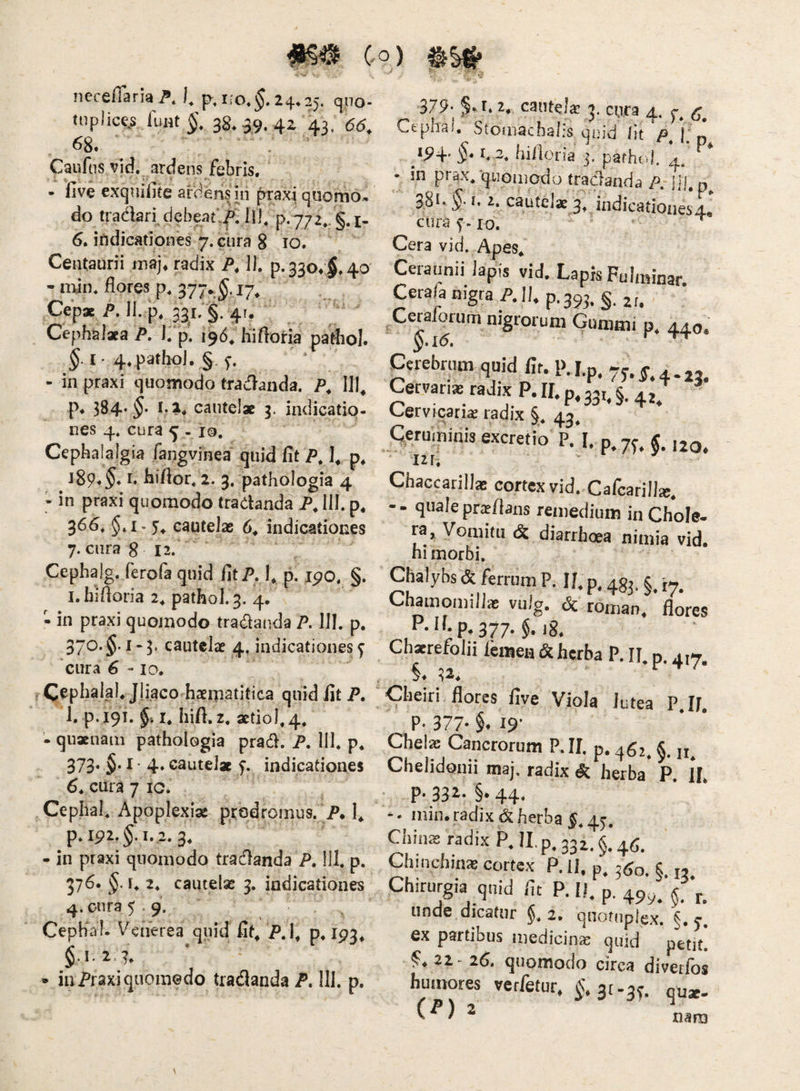 (o)
necessaria P. I. p. 110. §. 24. 25. quo-
tuplices sunt §. 38. 39. 42 43. 66.
68.
Causus vid. ardens febris.
- sive exquisite ardens in praxi quomo-
do tractari debeat. P. III. p. 772. §. 1-
6. indicationes 7. cura 8 10.
Centaurii maj. radix P. II. p. 330. §. 40
- min. flores p. 377. §. 17.
Cepæ P. II. p. 331. §. 41.
Cephalæa P. I. p. 196. historia pathol.
§. 1 - 4. pathol. §. 5.
- in praxi quomodo tractanda. P. III.
p. 384. §. 1. 2. cautelæ 3. indicatio-
nes 4. cura 5 - 10.
Cephalalgia sangvinea quid sit P. I. p.
189. §. 1. histor. 2. 3. pathologia 4
- in praxi quomodo tractanda P. III. p.
366. §. 1 - 5. cautelæ 6. indicationes
7. cura 8 12.
Cephalg. serosa quid sit P. I. p. 190. §.
1. historia 2. pathol. 3. 4.
- in praxi quomodo tractanda P. III. p.
370. §. 1 - 3. cautelæ 4. indicationes 5
cura 6 - 10.
Cephalal. Jliaco hæmatitica quid sit P.
I. p. 191. §. 1. hist. 2. ætiol. 4.
- quænam pathologia pract. P. III. p.
373. §. 1 - 4. cautelæ 5. indicationes
6. cura 7 10.
Cephal. Apoplexiæ prodromus. P. I.
p. 192. §. 1. 2. 3.
- in praxi quomodo tractanda P. III. p.
376. §. 1. 2. cautelæ 3. indicationes
4. cura 5 . 9.
Cephal. Venerea quid sit. P. I. p. 193.
§. 1. 2. 3.
- in Praxi quomodo tractanda P. III. p.
379. §. 1. 2. cautelæ 3. cura 4. 5. 6.
Cephal. Stomachalis quid sit P. I. p.
194. §. 1. 2. historia 3. pathol. 4.
- in prax. quomodo tractanda P. III. p.
381. §. 1. 2. cautelæ 3. indicationes 4.
cura 5 - 10.
Cera vid. Apes.
Ceraunii lapis vid. Lapis Fulminar.
Cerasa nigra P. II. p. 393. §. 21.
Cerasorum nigrorum Gummi p. 440.
§. 16.
Cerebrum quid sit. P. I. p. 75. §. 4 - 23.
Cervariæ radix P. II. p. 331. §. 42.
Cervicariæ radix §. 43.
Ceruminis excretio P. I. p. 75. §. 120.
121.
Chaccarillæ cortex vid. Cascarillæ.
-- quale præstans remedium in Chole-
ra, Vomitu & diarrhœa nimia vid.
hi morbi.
Chalybs & ferrum P. II. p. 483. §. 17.
Chamomillæ vulg. & roman. flores
P. II. p. 377. §. 18.
Chærefolii semen & herba P. II. p. 417.
§. 32.
Cheiri flores sive Viola lutea P. II.
p. 377. §. 19.
Chelæ Cancrorum P. II. p. 462. §. 11.
Chelidonii maj. radix & herba P. II.
p. 332. §. 44.
-- min. radix & herba §. 45.
Chinæ radix P. II. p. 332. §. 46.
Chinchinæ cortex P. II. p. 360. §. 13.
Chirurgia quid sit P. II. p. 499. §. 1.
unde dicatur §. 2. quotuplex. §. 5.
ex partibus medicinæ quid petit.
§. 22 - 26. quomodo circa diversos
humores versetur. §. 31 - 35. quæ-
(P) 2 nam